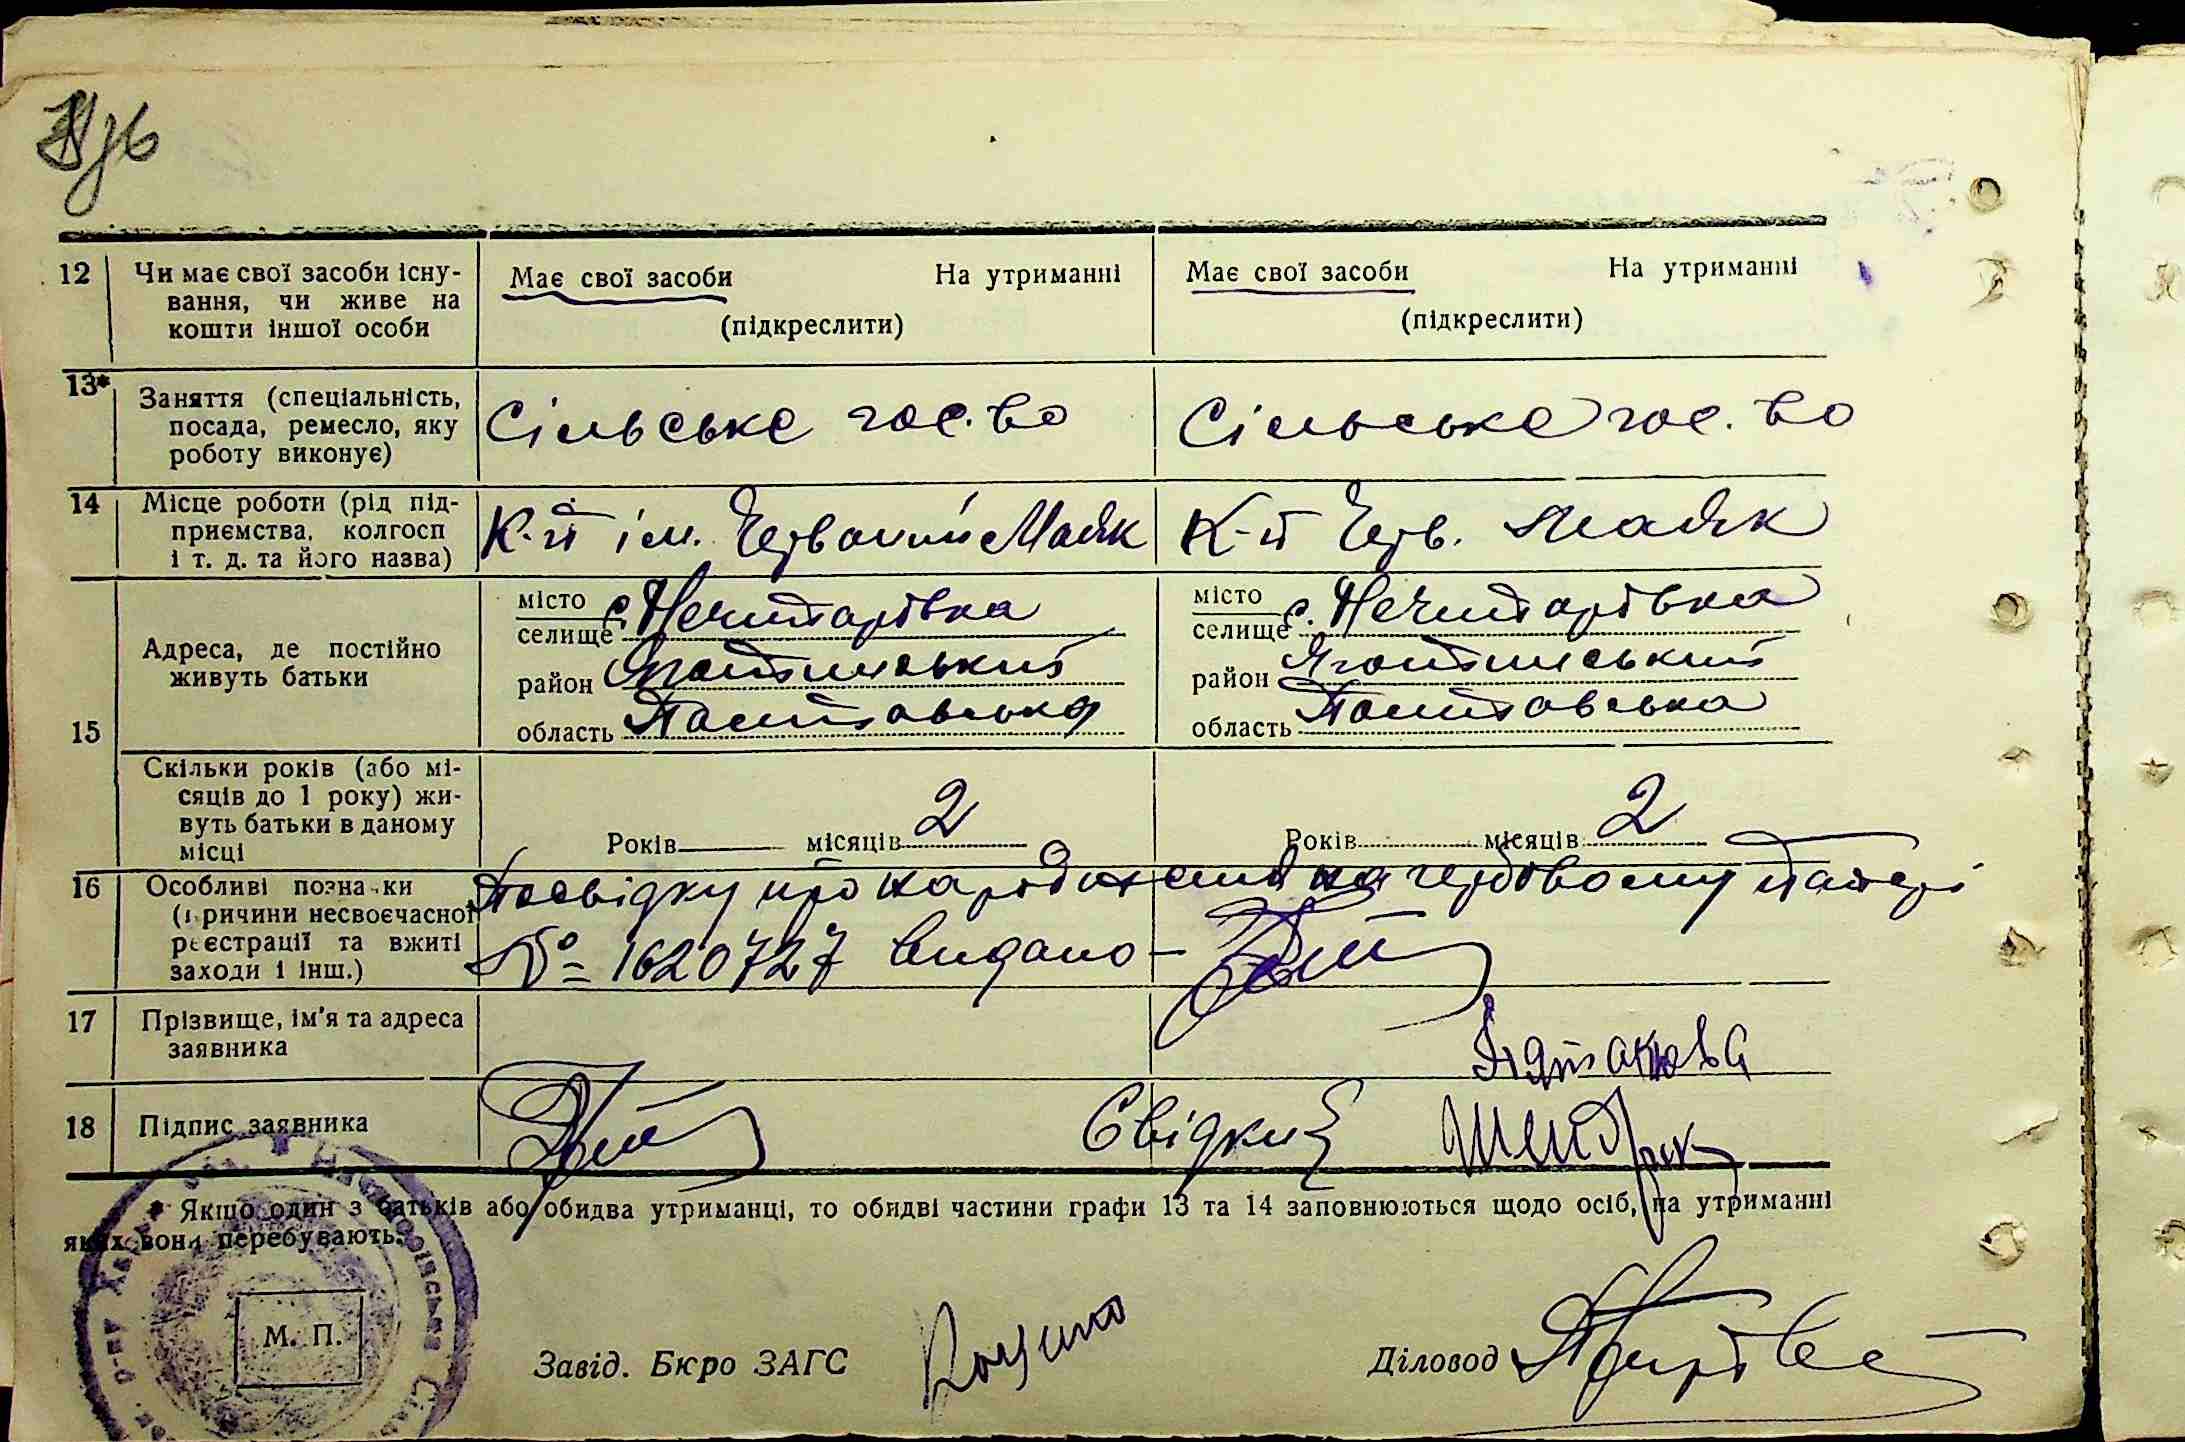 12 Чи має свої засоби існу-
вання, чи живе на
кошти іншої особи
Має свої засоби На утриманні
(підкреслити)
Має свої засоби На утриманні
(підкреслити)
13* Заняття (спеціальність,
посада, ремесло, яку
роботу виконує)
Сільське гос. во
Сільське гос. во
14 Місце роботи (рід під-
приємства, колгосп
і т. д. та його назва)
К-п ім. Червоний Маяк
К-п Черв. Маяк
15 Адреса, де постійно
живуть батьки
місто
селище с. Нечипорівка
район Яготинський
область Полтавська
місто
селище с. Нечипорівка
район Яготинський
область Полтавська
Скільки років (або мі-
сяців до 1 року) жи-
вуть батьки в даному
місці
Років місяців 2
Років місяців 2
16 Особливі познаки
(причини несвоєчасної
реєстрації та вжиті
заходи і інш.)
Посвідку про народження на гербовому папері
№ 1620727 видано
17 Прізвище, ім'я та адреса
заявника
18 Підпис заявника
Свідки
* Якщо один з батьків або обидва утриманці, то обидві частини графи 13 та 14 заповнюються щодо осіб, на утриманні
яких вони перебувають.
М. П.
Завід. Бюро ЗАГС
Діловод